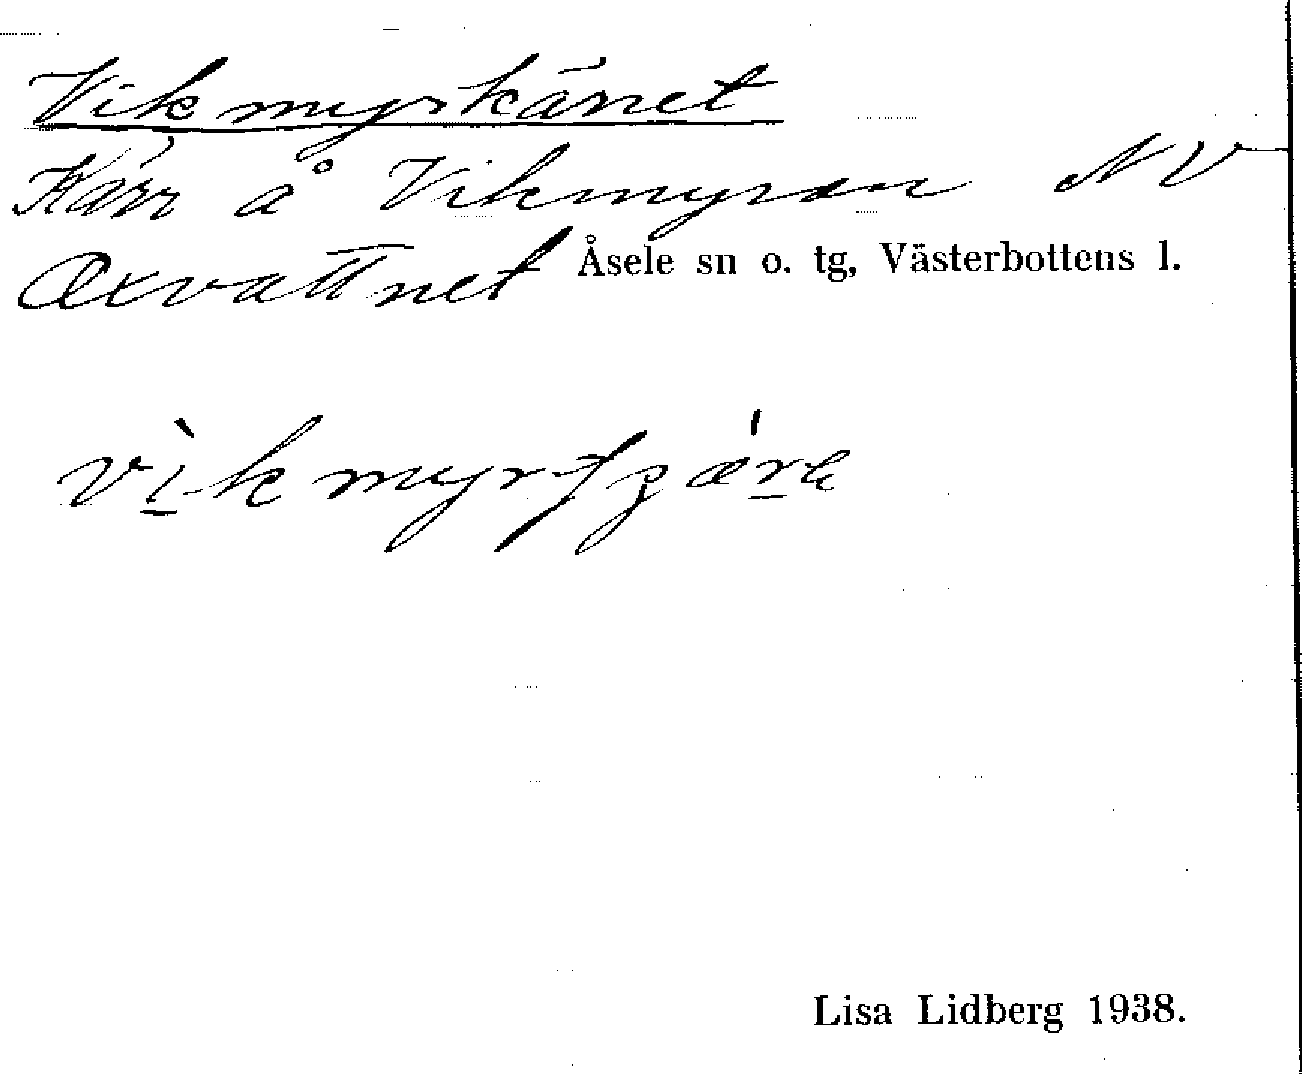 Vikmyrkänet
Kärr å Vikmyran NV
Oxvattnet Åsele sn o. tg, Västerbottens l.
Lisa Lidberg 1938.